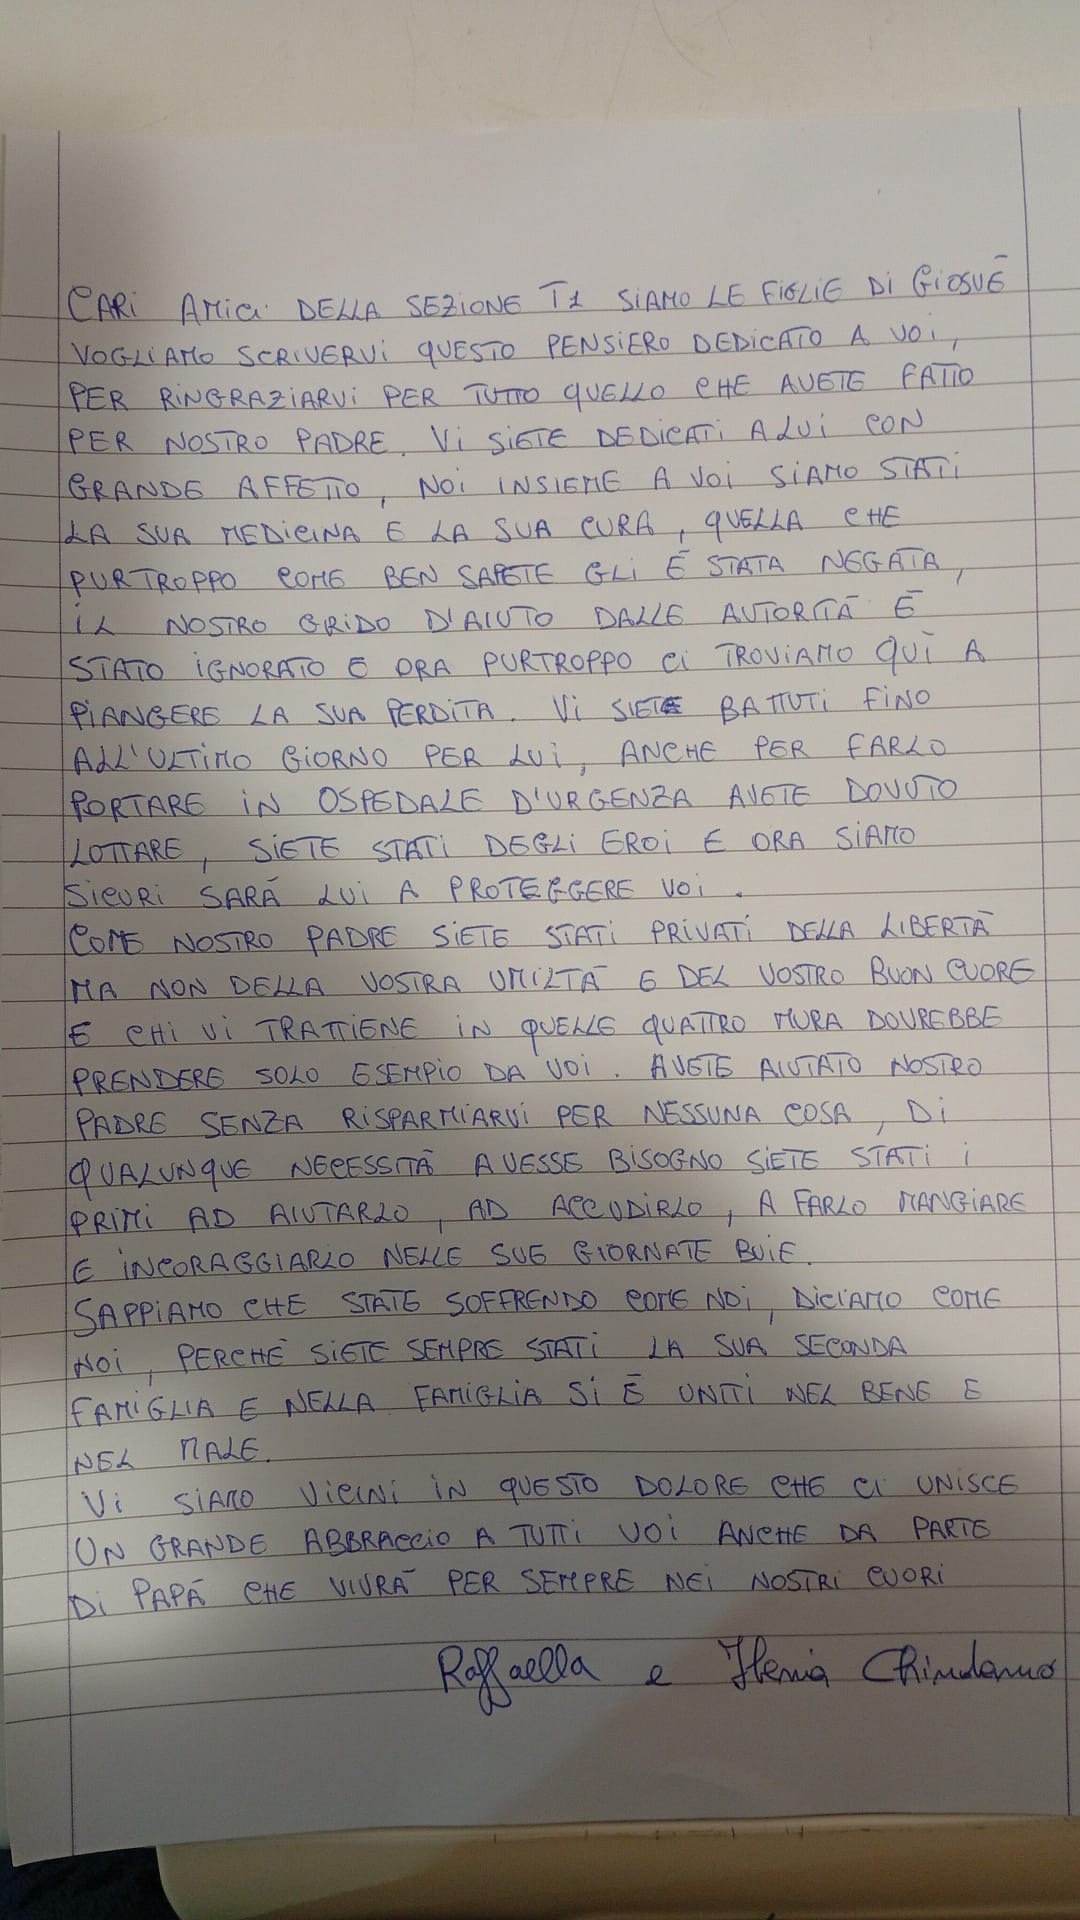 CARI AMICI DELLA SEZIONE T1 SIAMO LE FIGLIE DI GIOSUÈ
VOGLIAMO SCRIVERVI QUESTO PENSIERO DEDICATO A VOI,
PER RINGRAZIARVI PER TUTTO QUELLO CHE AVETE FATTO
PER NOSTRO PADRE. VI SIETE DEDICATI A LUI CON
GRANDE AFFETTO, NOI INSIEME A VOI SIAMO STATI
LA SUA MEDICINA E LA SUA CURA, QUELLA CHE
PURTROPPO COME BEN SAPETE GLI È STATA NEGATA,
IL NOSTRO GRIDO D'AIUTO DALLE AUTORITÀ È
STATO IGNORATO E ORA PURTROPPO CI TROVIAMO QUI A
PIANGERE LA SUA PERDITA. VI SIETE BATTUTI FINO
ALL'ULTIMO GIORNO PER LUI, ANCHE PER FARLO
PORTARE IN OSPEDALE D'URGENZA AVETE DOVUTO
LOTTARE, SIETE STATI DEGLI EROI E ORA SIAMO
SICURI SARÀ LUI A PROTEGGERE VOI.
COME NOSTRO PADRE SIETE STATI PRIVATI DELLA LIBERTÀ
MA NON DELLA VOSTRA UMILTÀ E DEL VOSTRO BUON CUORE
E CHI VI TRATTIENE IN QUELLE QUATTRO MURA DOVREBBE
PRENDERE SOLO ESEMPIO DA VOI. AVETE AIUTATO NOSTRO
PADRE SENZA RISPARMIARVI PER NESSUNA COSA, DI
QUALUNQUE NECESSITÀ AVESSE BISOGNO SIETE STATI I
PRIMI AD AIUTARLO, AD ACCUDIRLO, A FARLO MANGIARE
E INCORAGGIARLO NELLE SUE GIORNATE BUIE.
SAPPIAMO CHE STATE SOFFRENDO COME NOI, DICIAMO COME
NOI, PERCHÈ SIETE SEMPRE STATI LA SUA SECONDA
FAMIGLIA E NELLA FAMIGLIA SI È UNITI NEL BENE E
NEL MALE.
VI SIAMO VICINI IN QUESTO DOLORE CHE CI UNISCE
UN GRANDE ABBRACCIO A TUTTI VOI ANCHE DA PARTE
DI PAPÀ CHE VIVRÀ PER SEMPRE NEI NOSTRI CUORI
Raffaella e Ilenia Chindamo